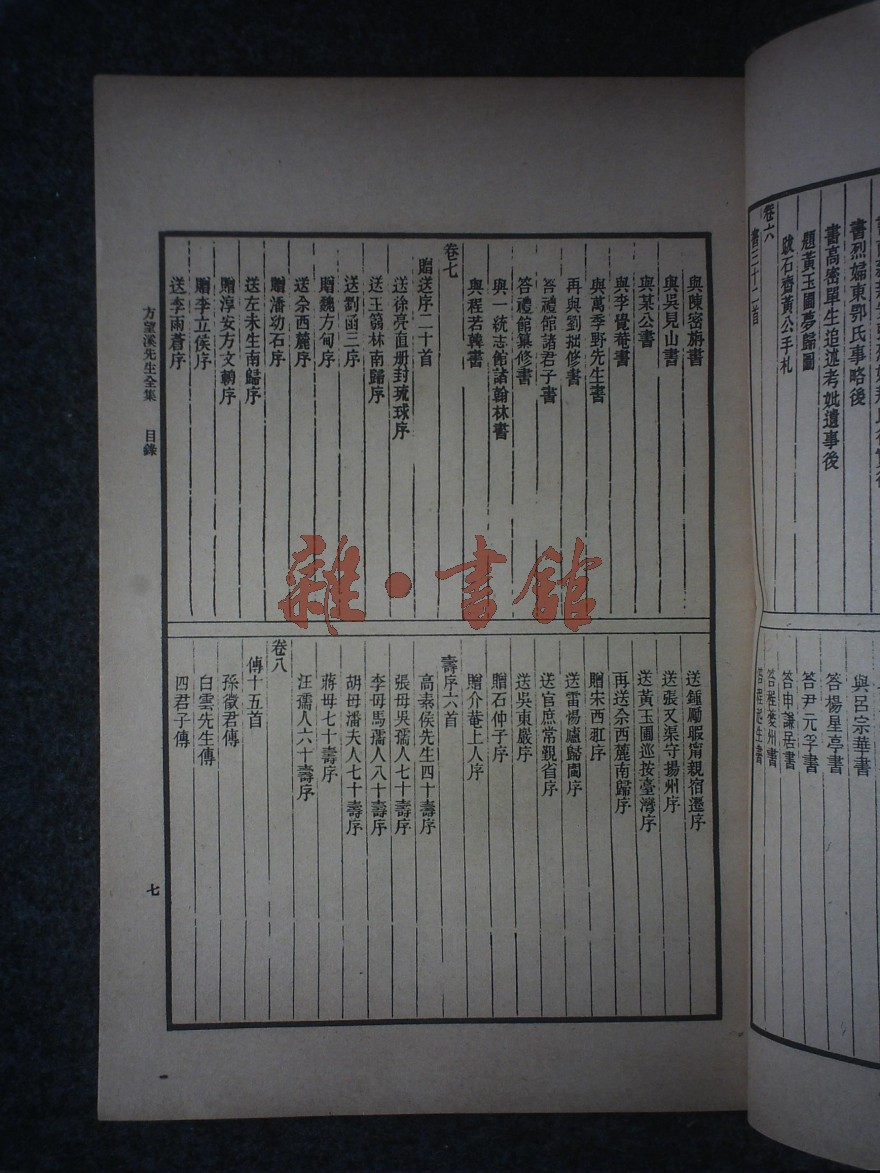 書烈婦東鄂氏事略後
書高密單生追述考妣遺事後
題黃玉圃夢歸圖
跋石齋黃公手札
卷六
書三十二首
與呂宗華書
答楊星亭書
答尹元孚書
答申謙居書
答程夔州書
與陳密旃書
與吳見山書
與某公書
與李覺菴書
與萬季野先生書
再與劉拙修書
答禮館諸君子書
答禮館纂修書
與一統志館諸翰林書
與程若韓書
卷七
贈送序二十首
送徐亮直册封琉球序
送王篛林南歸序
送劉函三序
贈魏方甸序
送佘西麓序
贈潘幼石序
送左未生南歸序
贈淳安方文輈序
贈李立侯序
送李雨蒼序
送鍾勵暇甯親宿遷序
送張又渠守揚州序
送黃玉圃巡按臺灣序
再送佘西麓南歸序
贈宋西𤫊序
送雷惕廬歸閩序
送官庶常覲省序
送吳東巖序
贈石仲子序
贈介菴上人序
壽序六首
高素侯先生四十壽序
張母吳孺人七十壽序
李母馬孺人八十壽序
胡母潘夫人七十壽序
蔣母七十壽序
汪孺人六十壽序
卷八
傳十五首
孫徵君傳
白雲先生傳
四君子傳
方望溪先生全集 目錄
七
雜·書館